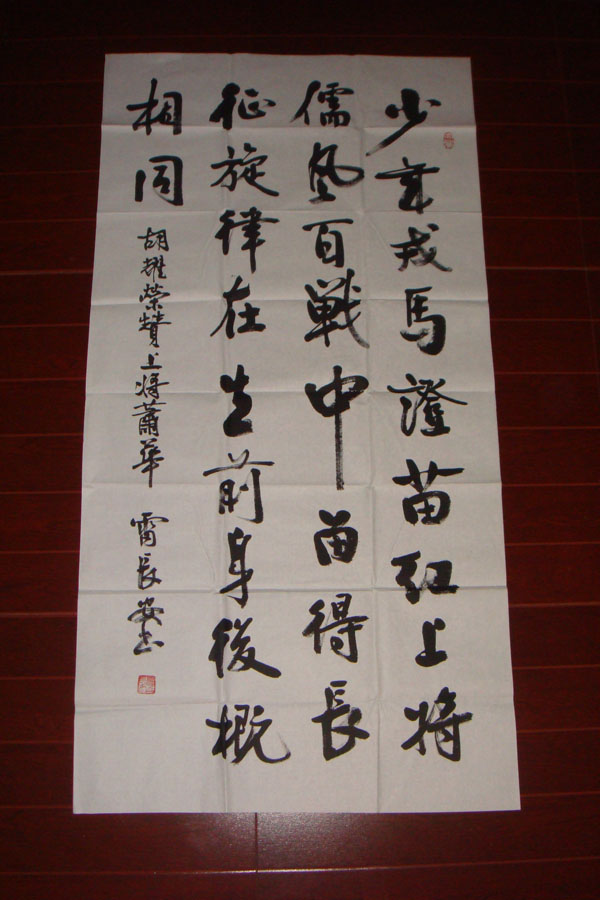 少年戎馬證苗紅上将
儒風百戰中留得長
征旋律在生前身後概
相同
胡耀榮贊上将蕭華 雷長安书